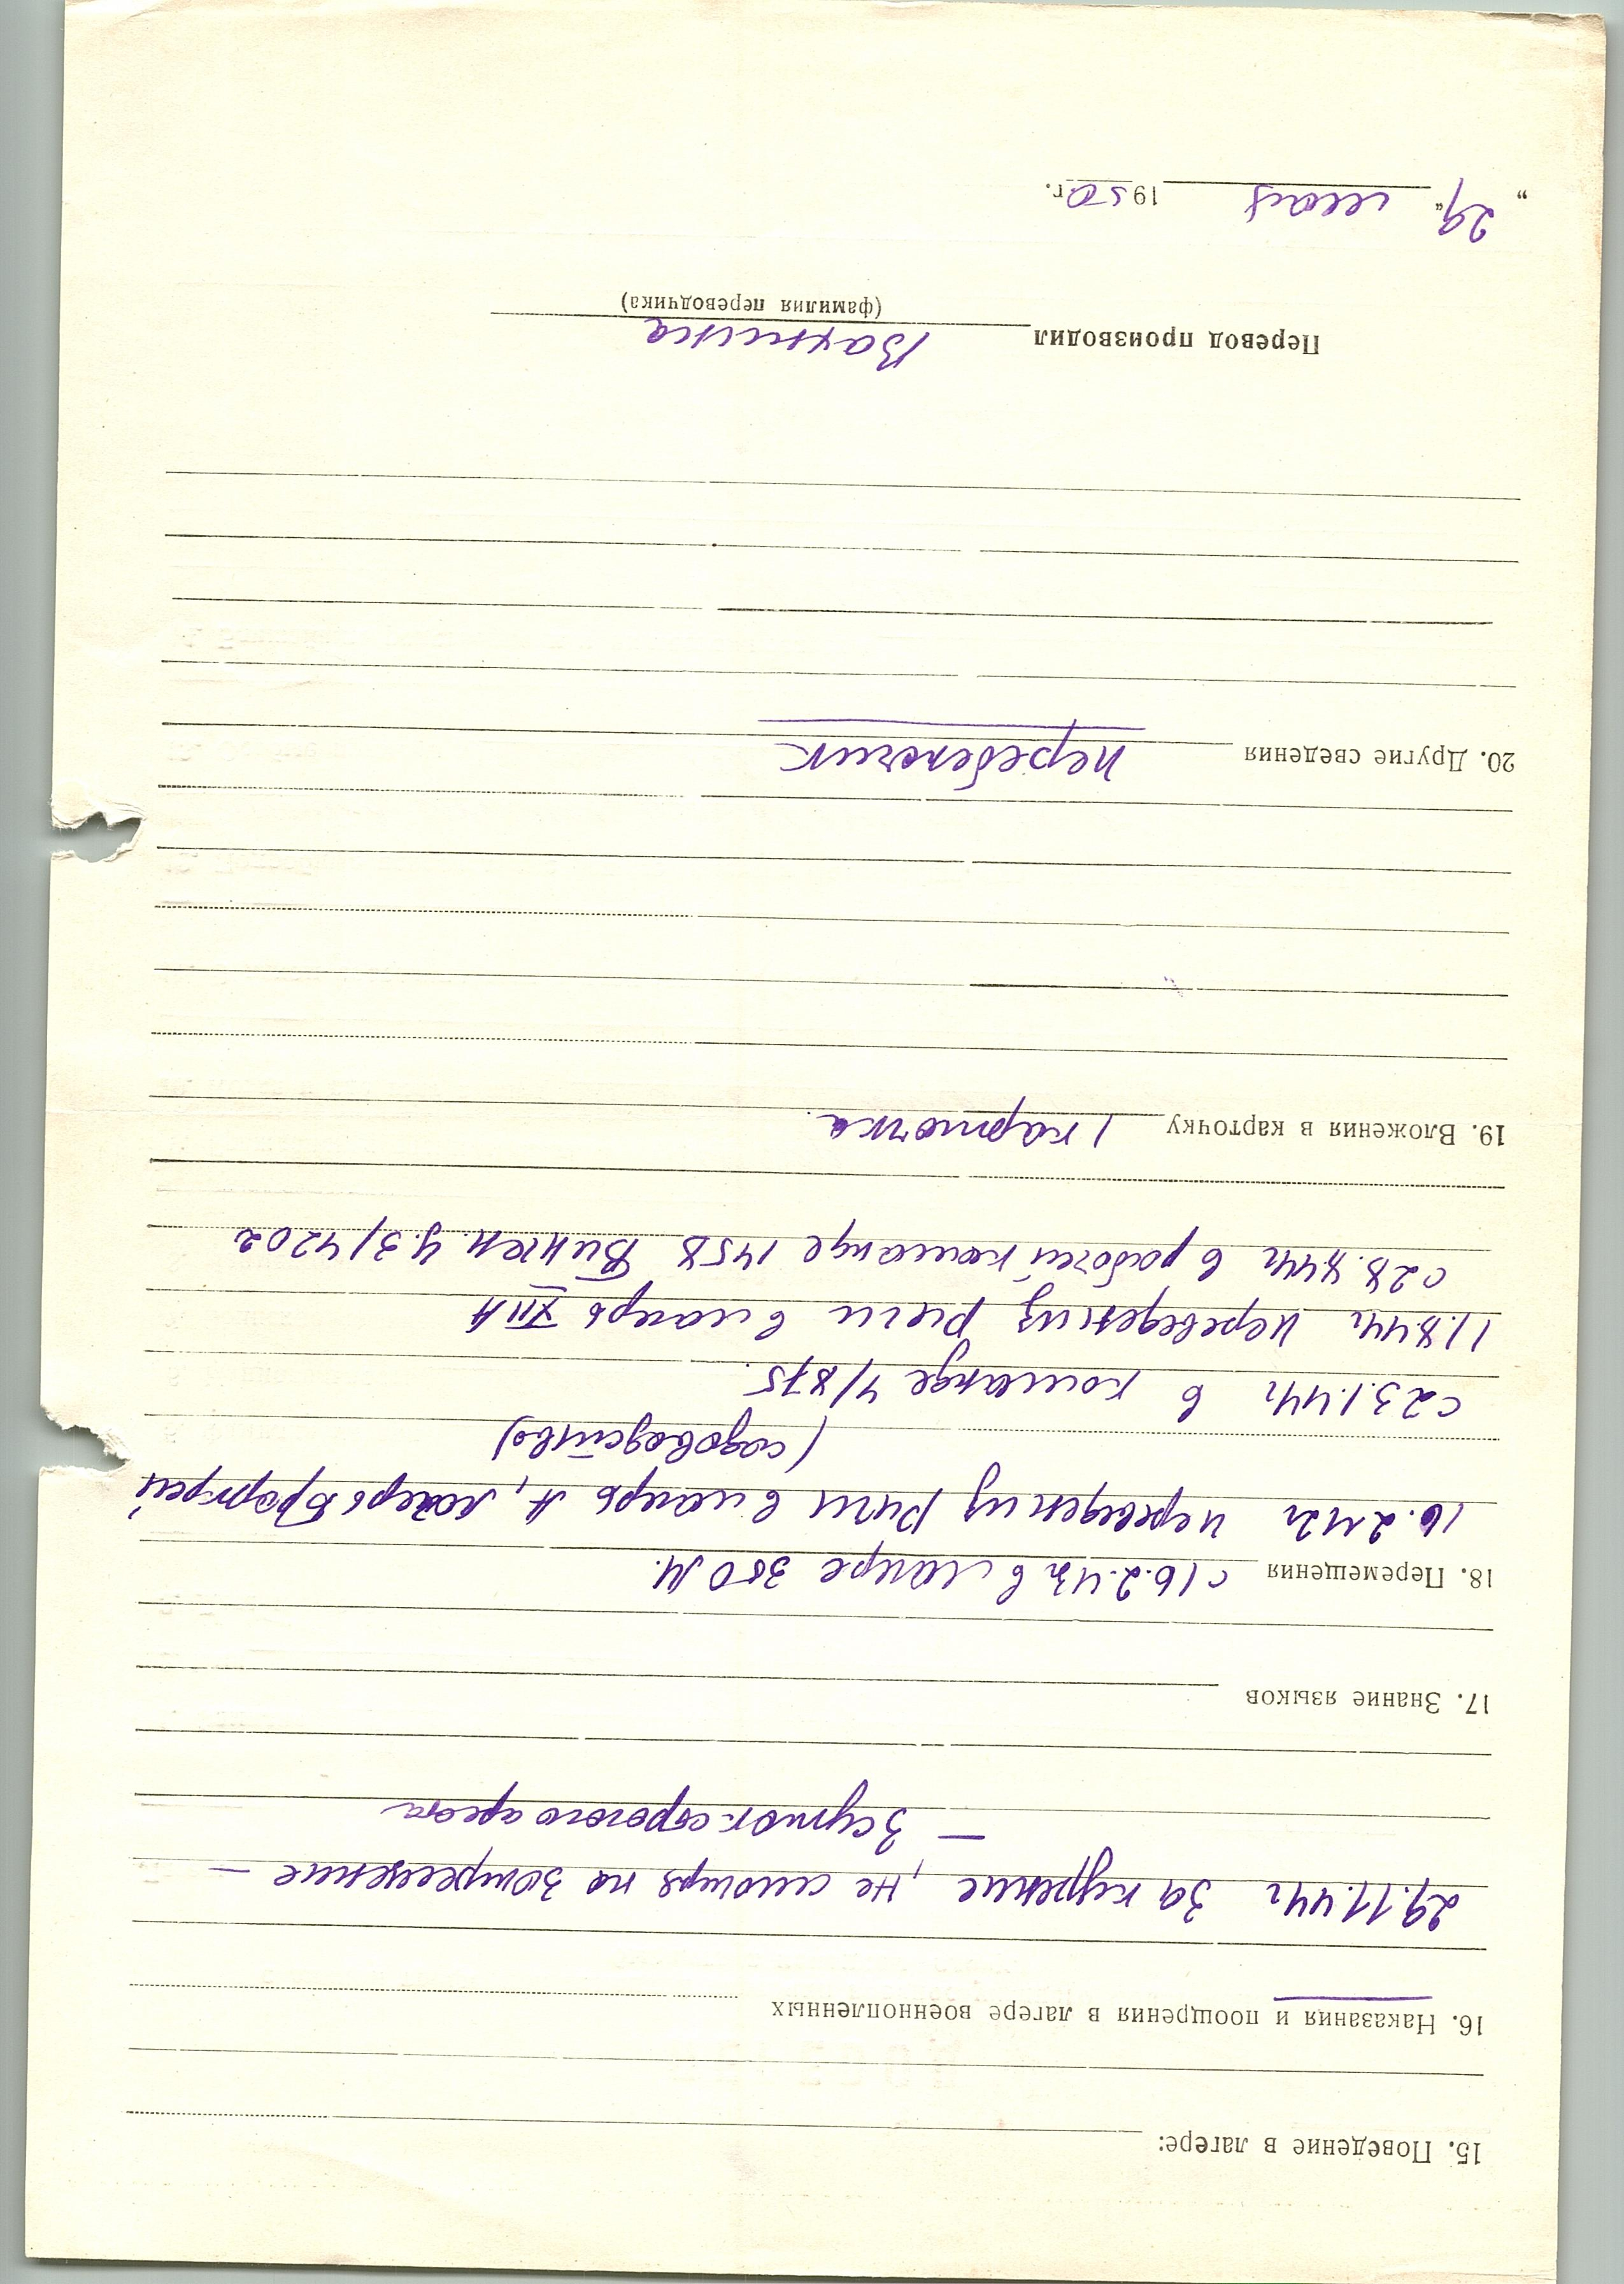 15. Поведение в лагере:
16. Наказания и поощрения в лагере военнопленных
29.11.44г За курение, не смотря на запрещение –
– 3 суток строгого ареста
17. Знание языков
18. Перемещения с 16.2.43г в лагере 350 М.
16.2.42г переведен из Риги в лагерь А, лагерь
(садоводство)
с 23.1.44г в команде 4/875.
11.8.44г переведен из Риги в лагерь XII А
с 28.8.44г в рабочей команде 1458 3/4202
19. Вложения в карточку 1 карточка.
20. Другие сведения перебежчик
Перевод производил Вахнина
(фамилия переводчика)
„29“ мая 1950 г.